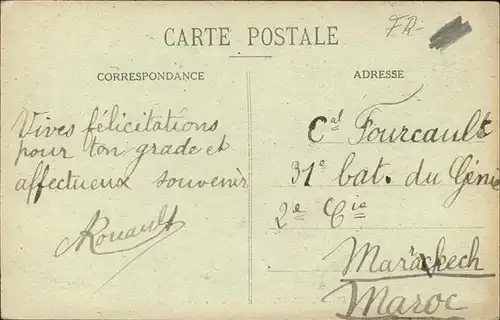 FR-
CARTE POSTALE
CORRESPONDANCE
ADRESSE
Vives félicitations
pour ton grade et
affectueux souvenir
Rouault
Cal Fourcault
31e bat. du Génie
2e Cie
Marackech
Maroc